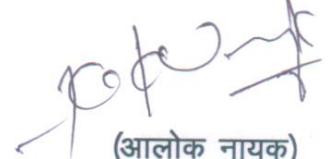 (आलोक नायक)